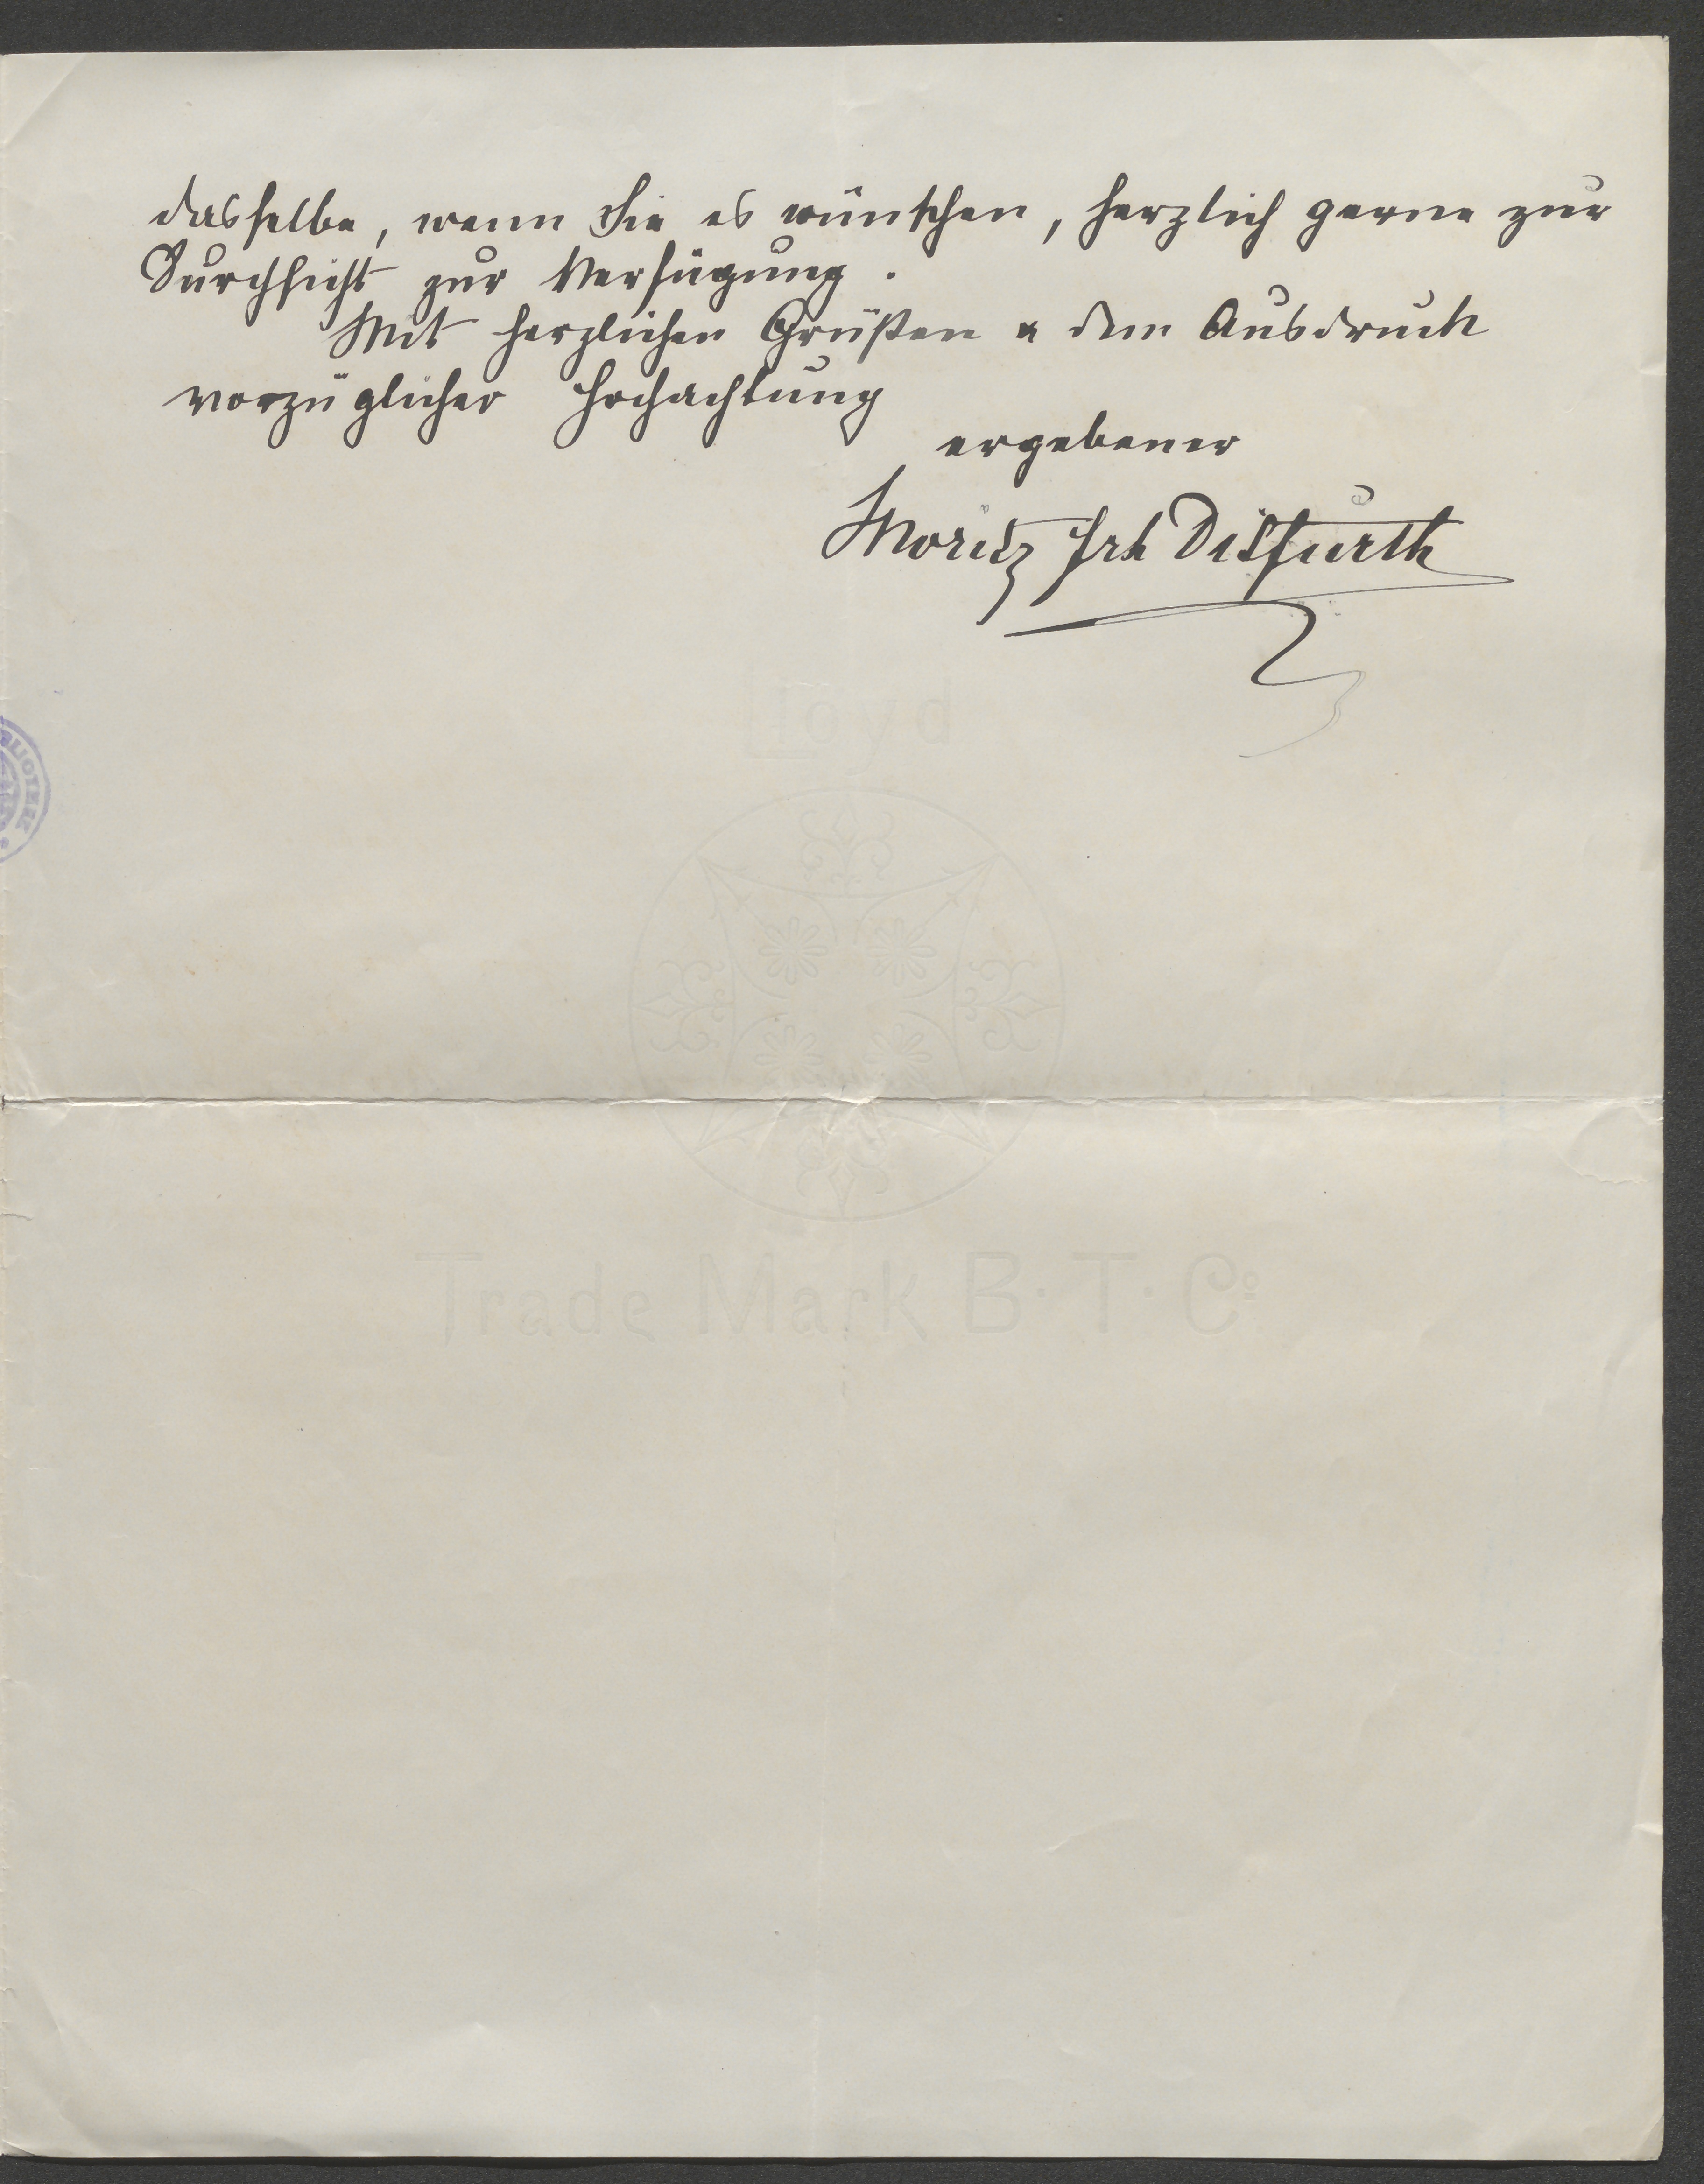 dasselbe, wenn Sie es wünschen, herzlich gerne zur
Durchsicht zur Verfügung.
Mit herzlichen Grüßen & dem Ausdruck
vorzüglicher Hochachtung
ergebener
Moritz Frh Ditfurth
Lloyd
BLIOTHEK
Trade Mark B. T. Co